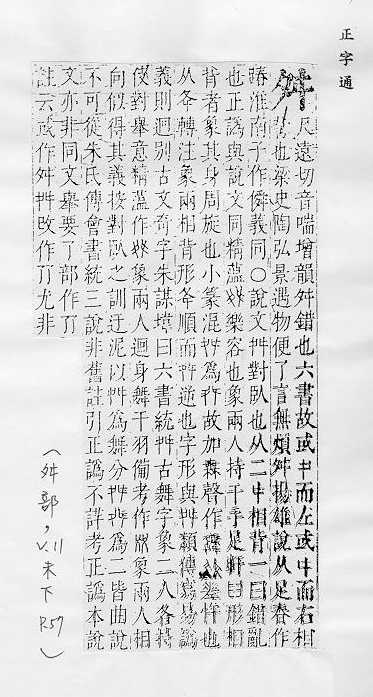 正字通
尺遠切音喘增韻舛錯也六書故或㐄而左或中而右相
也梁史陶弘景遇物便了言無煩舛揚雄說从足春作
踳淮南子作僢義同○說文舛對臥也从二中相背一曰錯亂
也正譌與說文同精薀樂容也象兩人持干手足形相
背者象其身周旋也小篆混為故加聲作也
从夅轉注象兩相背形夅順而舛逆也字形與舛類傳寫易譌
義則迥别古文奇字朱謀㙔曰六書統舛古舞字象二人各持
伎對舉意精薀作象兩人迴身舞干羽備考作象兩人相
向似得其義按對臥之訓迂泥以舛為舞分舛為二皆曲說
不可從朱氏傅會書統三說非舊註引正譌不詳考正譌本說
文亦非同文舉要了部作丌
註云或作舛改作丌尤非
（舛部，V.11 未下 P.57）